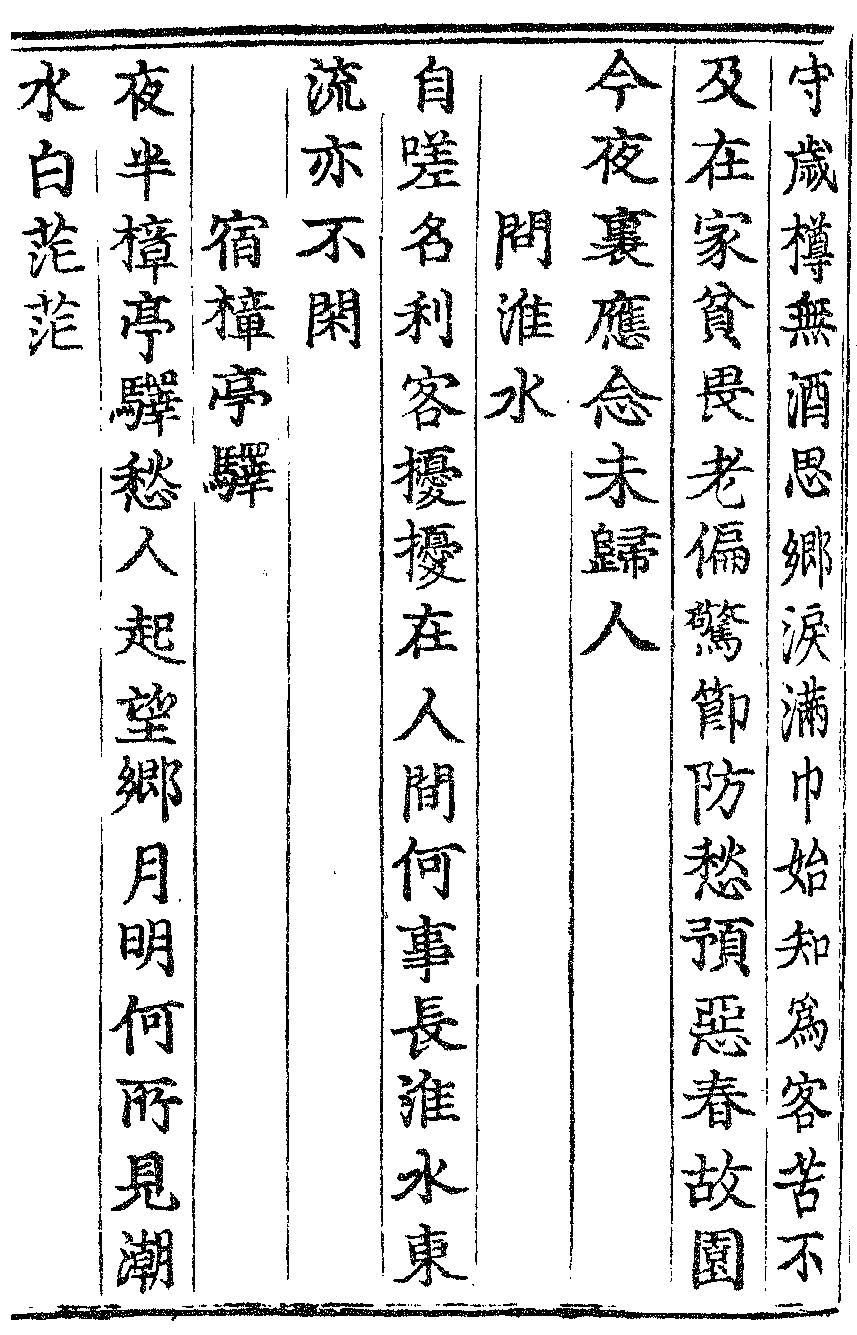 守歲樽無酒思鄉淚滿巾始知爲客苦不
及在家貧畏老偏驚節防愁預惡春故園
今夜裏應念未歸人
問淮水
自嗟名利客擾擾在人間何事長淮水東
流亦不閑
宿樟亭驛
夜半樟亭驛愁人起望鄉月明何所見潮
水白茫茫